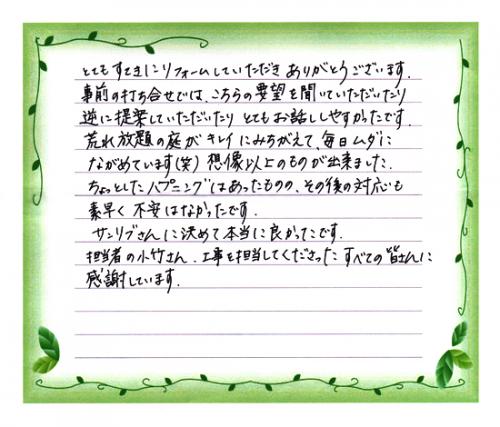 とてもすてきにリフォームしていただき ありがとうございます.
事前の打ち合せでは、こちらの要望を聞いていただいたり
逆に提案していただいたり とてもお話ししやすかったです.
荒れ放題の庭が キレイにみちがえて、毎日ムダに
ながめています(笑) 想像以上のものが出来ました.
ちょっとしたハプニングはあったものの、その後の対応も
素早く 不安はなかったです.
サンリブさんに決めて本当に良かったです.
担当者の小竹さん、工事を担当してくださった すべての皆さんに
感謝しています.